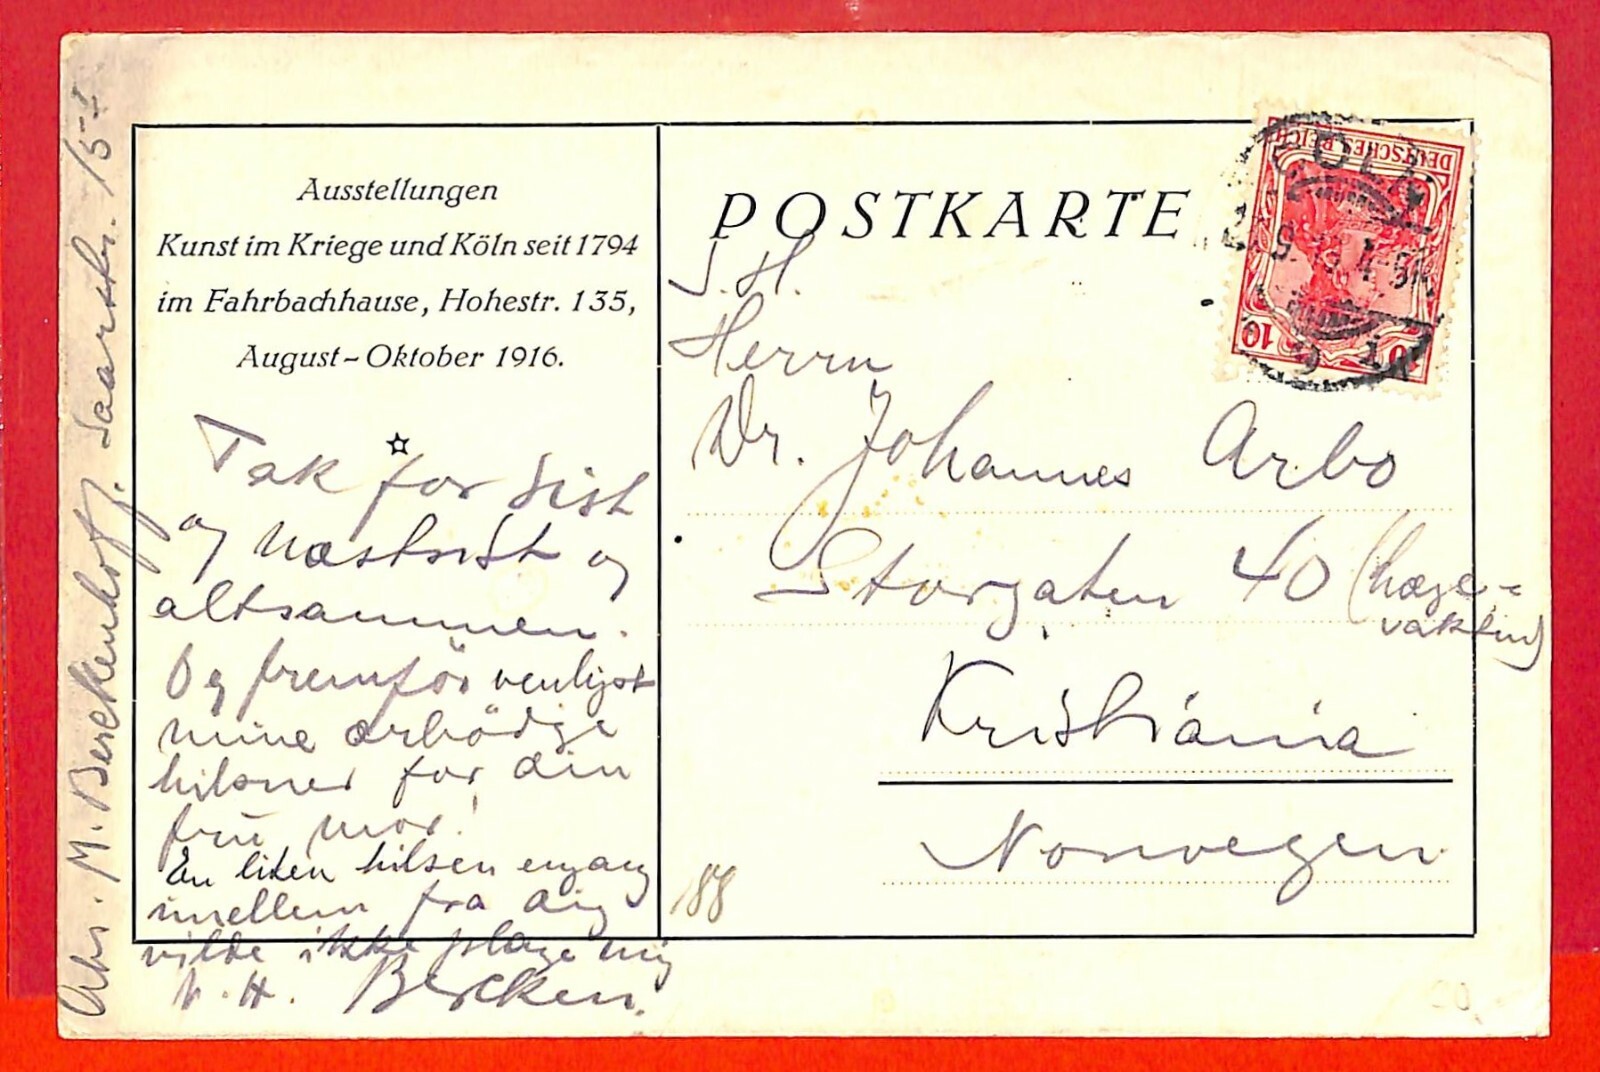 Ausstellungen
Kunst im Kriege und Köln seit 1794
im Fahrbachhause, Hohestr. 135,
August–Oktober 1916.
Tak for sist
og næstsist og
altsammen.
Og fremför venligst
mine ærbödige
hilsner for din
fru mor!
En liten hilsen engang
imellem fra dig
vilde ikke plage mig
V. H. Bercken.
Abs. M. Berckenhoff. Saarstr. 15
POSTKARTE
S. H.
Herrn
Dr. Johannes Arbo
Storgaten 40 (Læge-
vakten)
Kristiania
Norwegen
188
DEUTSCHES REICH
10
10
CÖLN